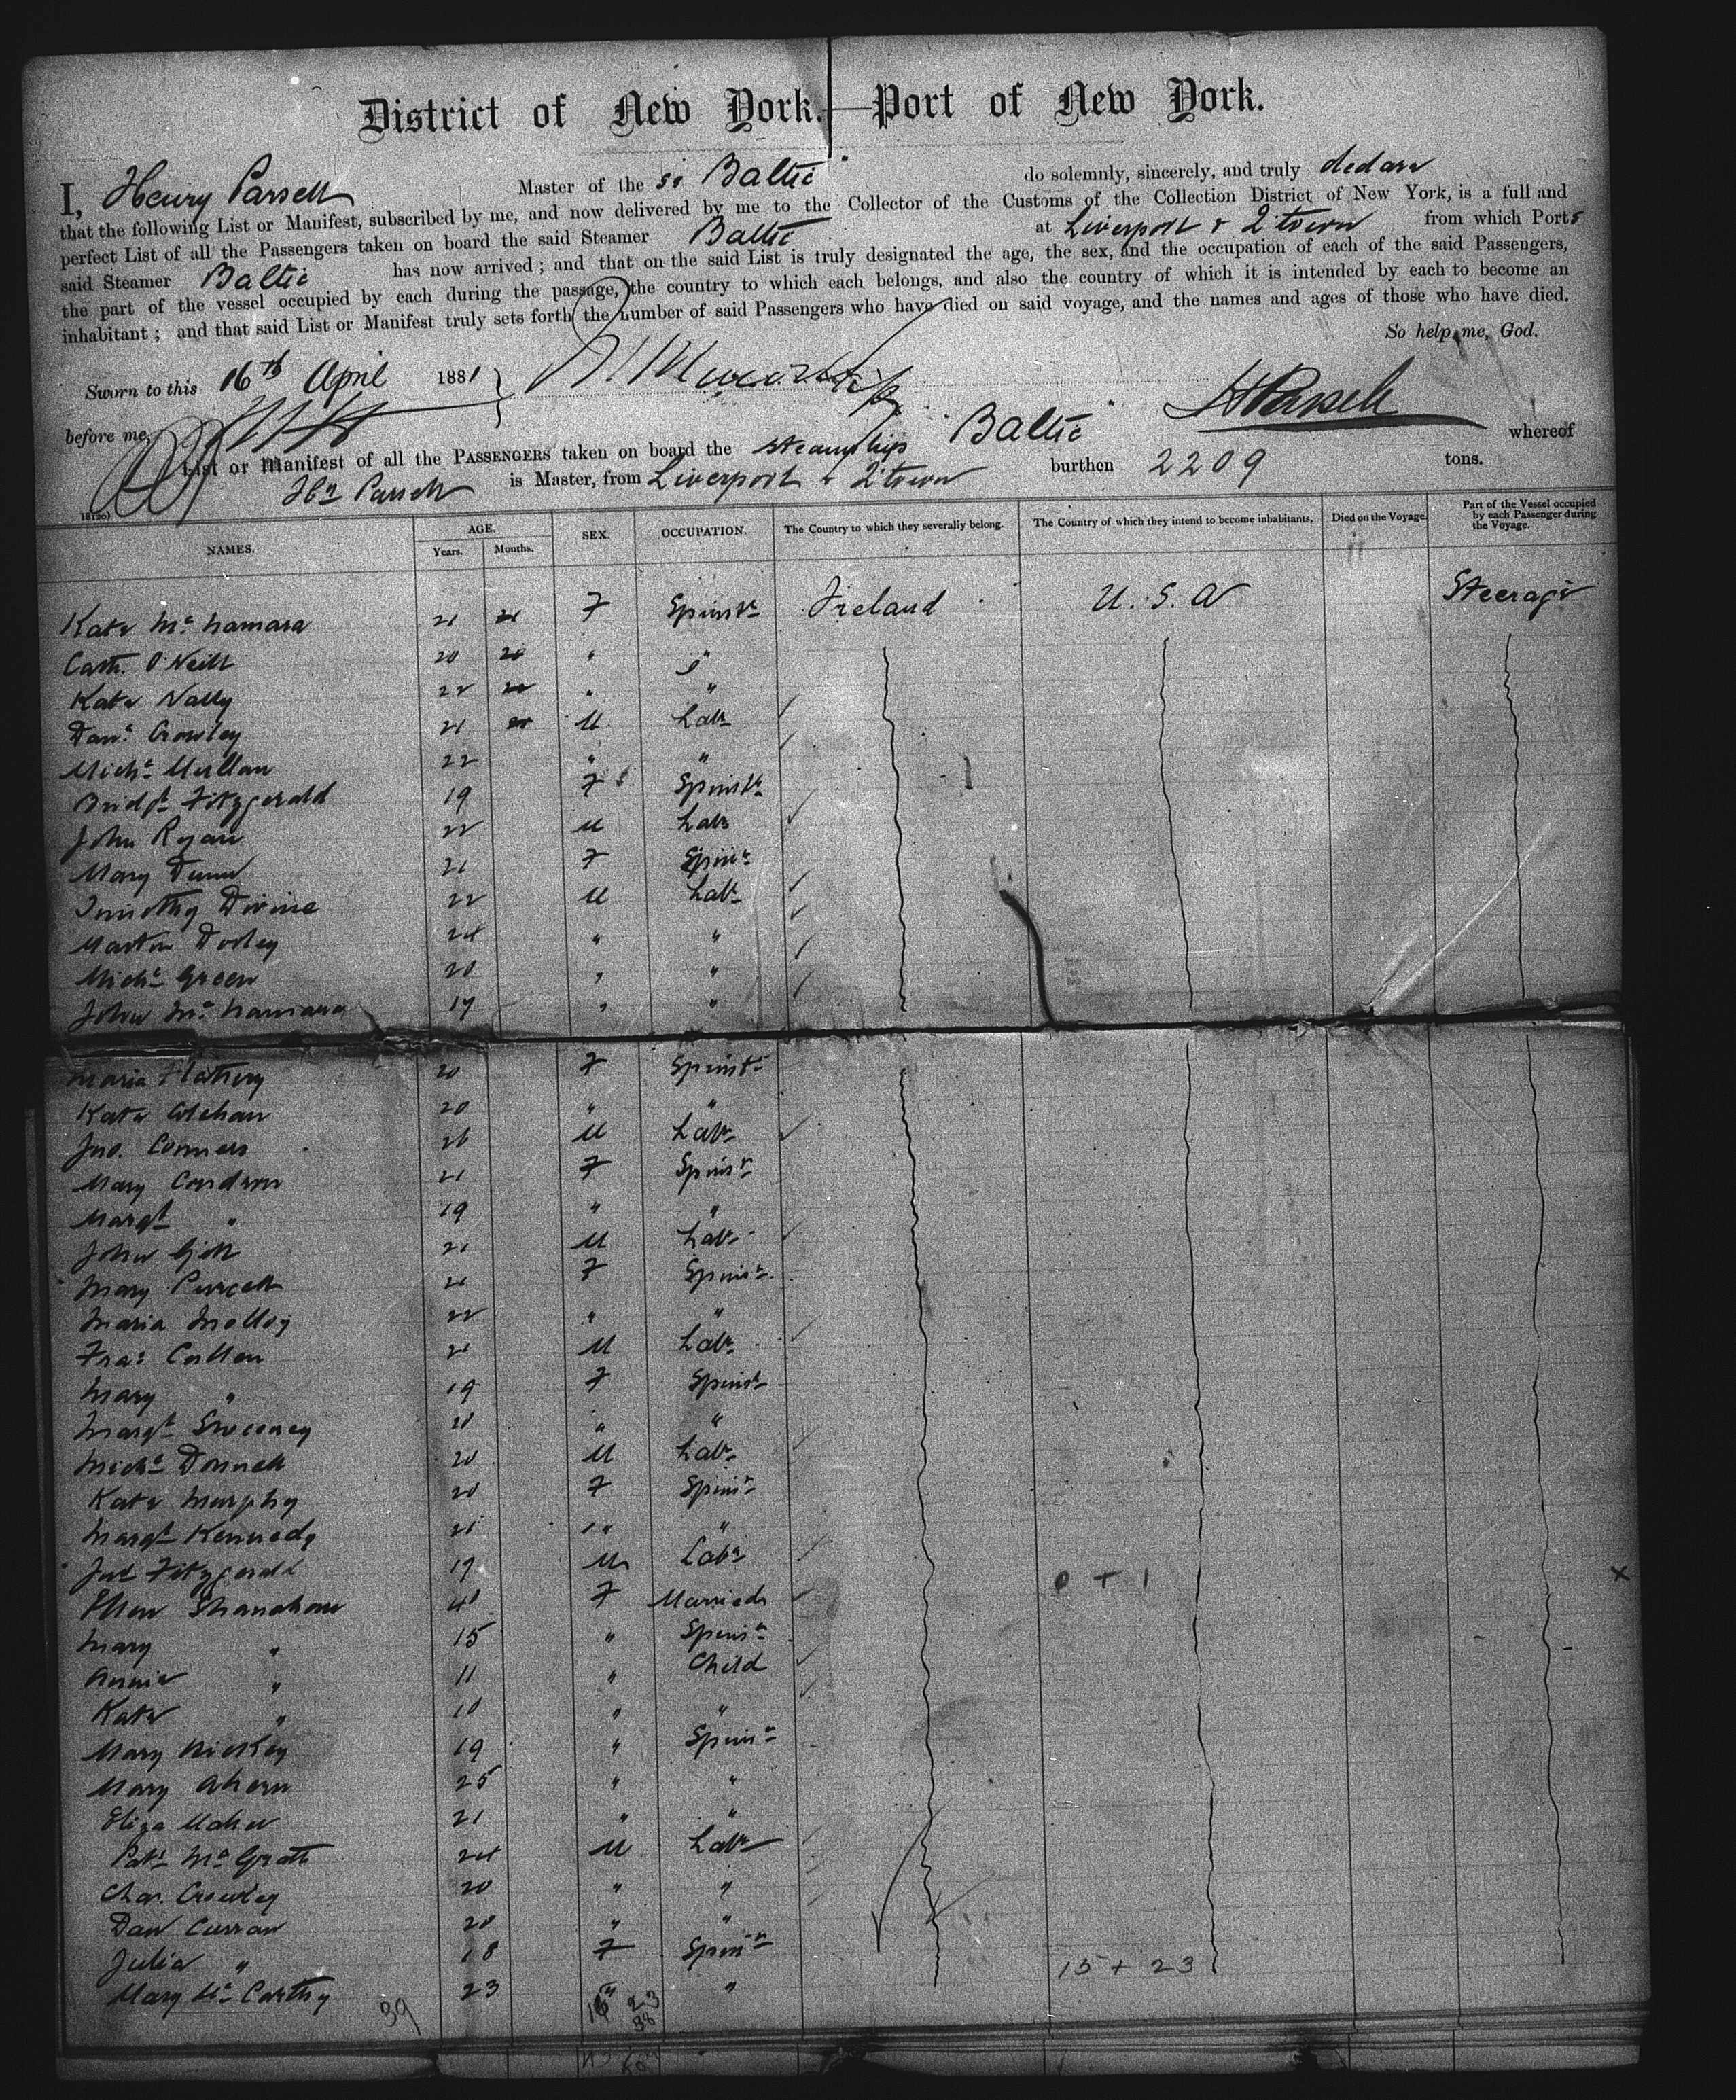 District of New York.—Port of New York.
I, Henry Parsell Master of the ss Baltic do solemnly, sincerely, and truly declare
that the following List or Manifest, subscribed by me, and now delivered by me to the Collector of the Customs of the Collection District of New York, is a full and
perfect List of all the Passengers taken on board the said Steamer Baltic at Liverpool & Q'town from which Ports
said Steamer Baltic has now arrived; and that on the said List is truly designated the age, the sex, and the occupation of each of the said Passengers,
the part of the vessel occupied by each during the passage, the country to which each belongs, and also the country of which it is intended by each to become an
inhabitant; and that said List or Manifest truly sets forth the number of said Passengers who have died on said voyage, and the names and ages of those who have died.
So help me, God.
Sworn to this 16th April 1881
before me, H Parsell
List or Manifest of all the PASSENGERS taken on board the steamship Baltic whereof
Hy Parsell is Master, from Liverpool & Q'town burthen 2209 tons.
NAMES. AGE. Years. Months. SEX. OCCUPATION. The Country to which they severally belong. The Country of which they intend to become inhabitants. Died on the Voyage. Part of the Vessel occupied by each Passenger during the Voyage.
Kate McNamara 21 21 F Spinstr Ireland U.S.A Steerage
Cath. O'Neill 20 20 " "
Kate Nally 22 " "
Danl Crowley 21 M Labr
Michl Mullan 22 " "
Bridgt Fitzgerald 19 F Spinstr
John Ryan 22 M Labr
Mary Dunn 21 F Spinr
Timothy Divine 22 M Labr
Martin Dooley 24 " "
Michl Green 20 " "
John McNamara 17 " "
Maria Flattery 20 F Spinstr
Kate Colehan 20 " "
Jno. Conners 26 M Labr
Mary Condron 21 F Spinsr
Margt " 19 " "
John Gill 21 M Labr
Mary Purcell 21 F Spinsr
Maria Molloy 22 " "
Fras Cullen 21 M Labr
Mary " 19 F Spinstr
Margt Sweeney 20 " "
Michl Donnell 20 M Labr
Kate Murphy 20 F Spinsr
Margt Kennedy 21 " "
Fitzgerald 17 M Labr
Ellen Shanahan 40 F Married 0 + 1 X
Mary " 15 " Spinsr
Annie " 11 " Child
Kate " 10 " "
Mary Hickey 19 " Spinsr
Mary Ahern 25 " "
Eliza Maher 21 " "
Patk McGrath 24 M Labr
Chas. Crowley 20 " "
Dan Curran 20 " "
Julia " 18 F Spinsr 15 + 23
Mary McCarthy 23 " "
39 23
38